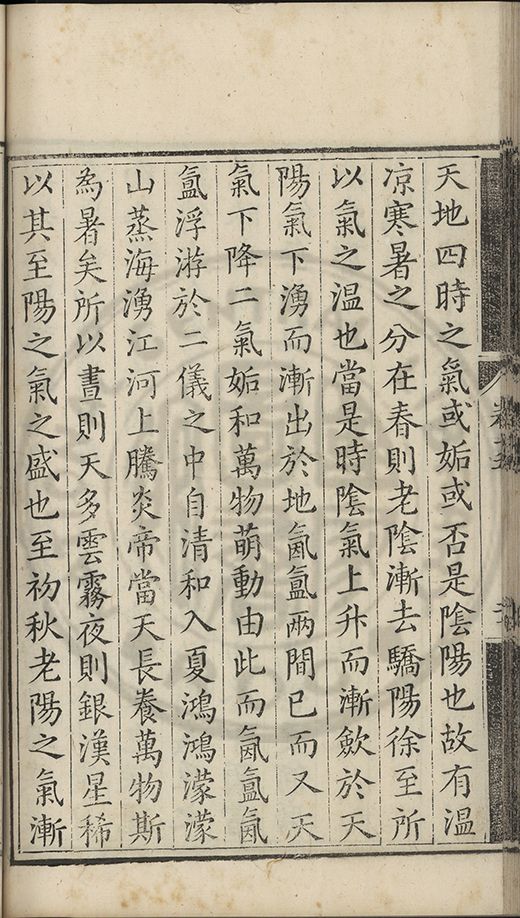 天地四時之氣或姤或否是陰陽也故有温
凉寒暑之分在春則老陰漸去驕陽徐至所
以氣之温也當是時陰氣上升而漸歛於天
陽氣下湧而漸出於地氤氳兩間已而又天
氣下降二氣姤和萬物萌動由此而氤氳氤
氳浮游於二儀之中自清和入夏鴻鴻濛濛
山蒸海湧江河上騰炎帝當天長養萬物斯
為暑矣所以晝則天多雲霧夜則銀漢星稀
以其至陽之氣之盛也至初秋老陽之氣漸